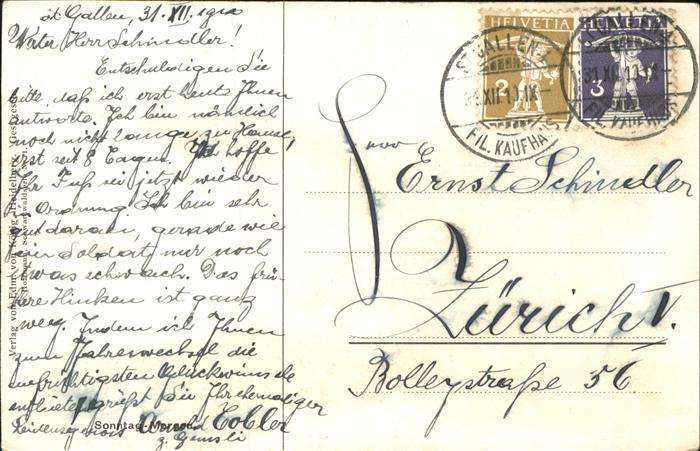 St Gallen, 31. XII. 1912
Werter Herr Schindler!
Entschuldigen Sie
bitte, daß ich erst heute Ihnen
antworte. Ich bin nämlich
noch nicht lange zu Hause,
erst seit 8 Tagen. Ich hoffe
Ihr Fuß sei jetzt wieder
in Ordnung. Ich bin sehr
gut daran, gerade wie
ein Soldat, nur noch
etwas schwach. Das frü-
here Hinken ist ganz
weg. Indem ich Ihnen
zum Jahreswechsel die
aufrichtigsten Glückwünsche
entbiete, grüßt Sie Ihr ehemaliger
Leidensgenoss
Tobler
z. Gemsli
Sonntag-Morgen
Verlag von Edm. von König, Heidelberg. Gesetzl.
HELVETIA
2
HELVETIA
3
ST. GALLEN
31. XII. 12. IX
FIL. KAUFHAUS
ST. GALLEN
31. XII. 12. IX
FIL. KAUFHAUS
Ernst Schindler
Zürich V.
Bolleystraße 56